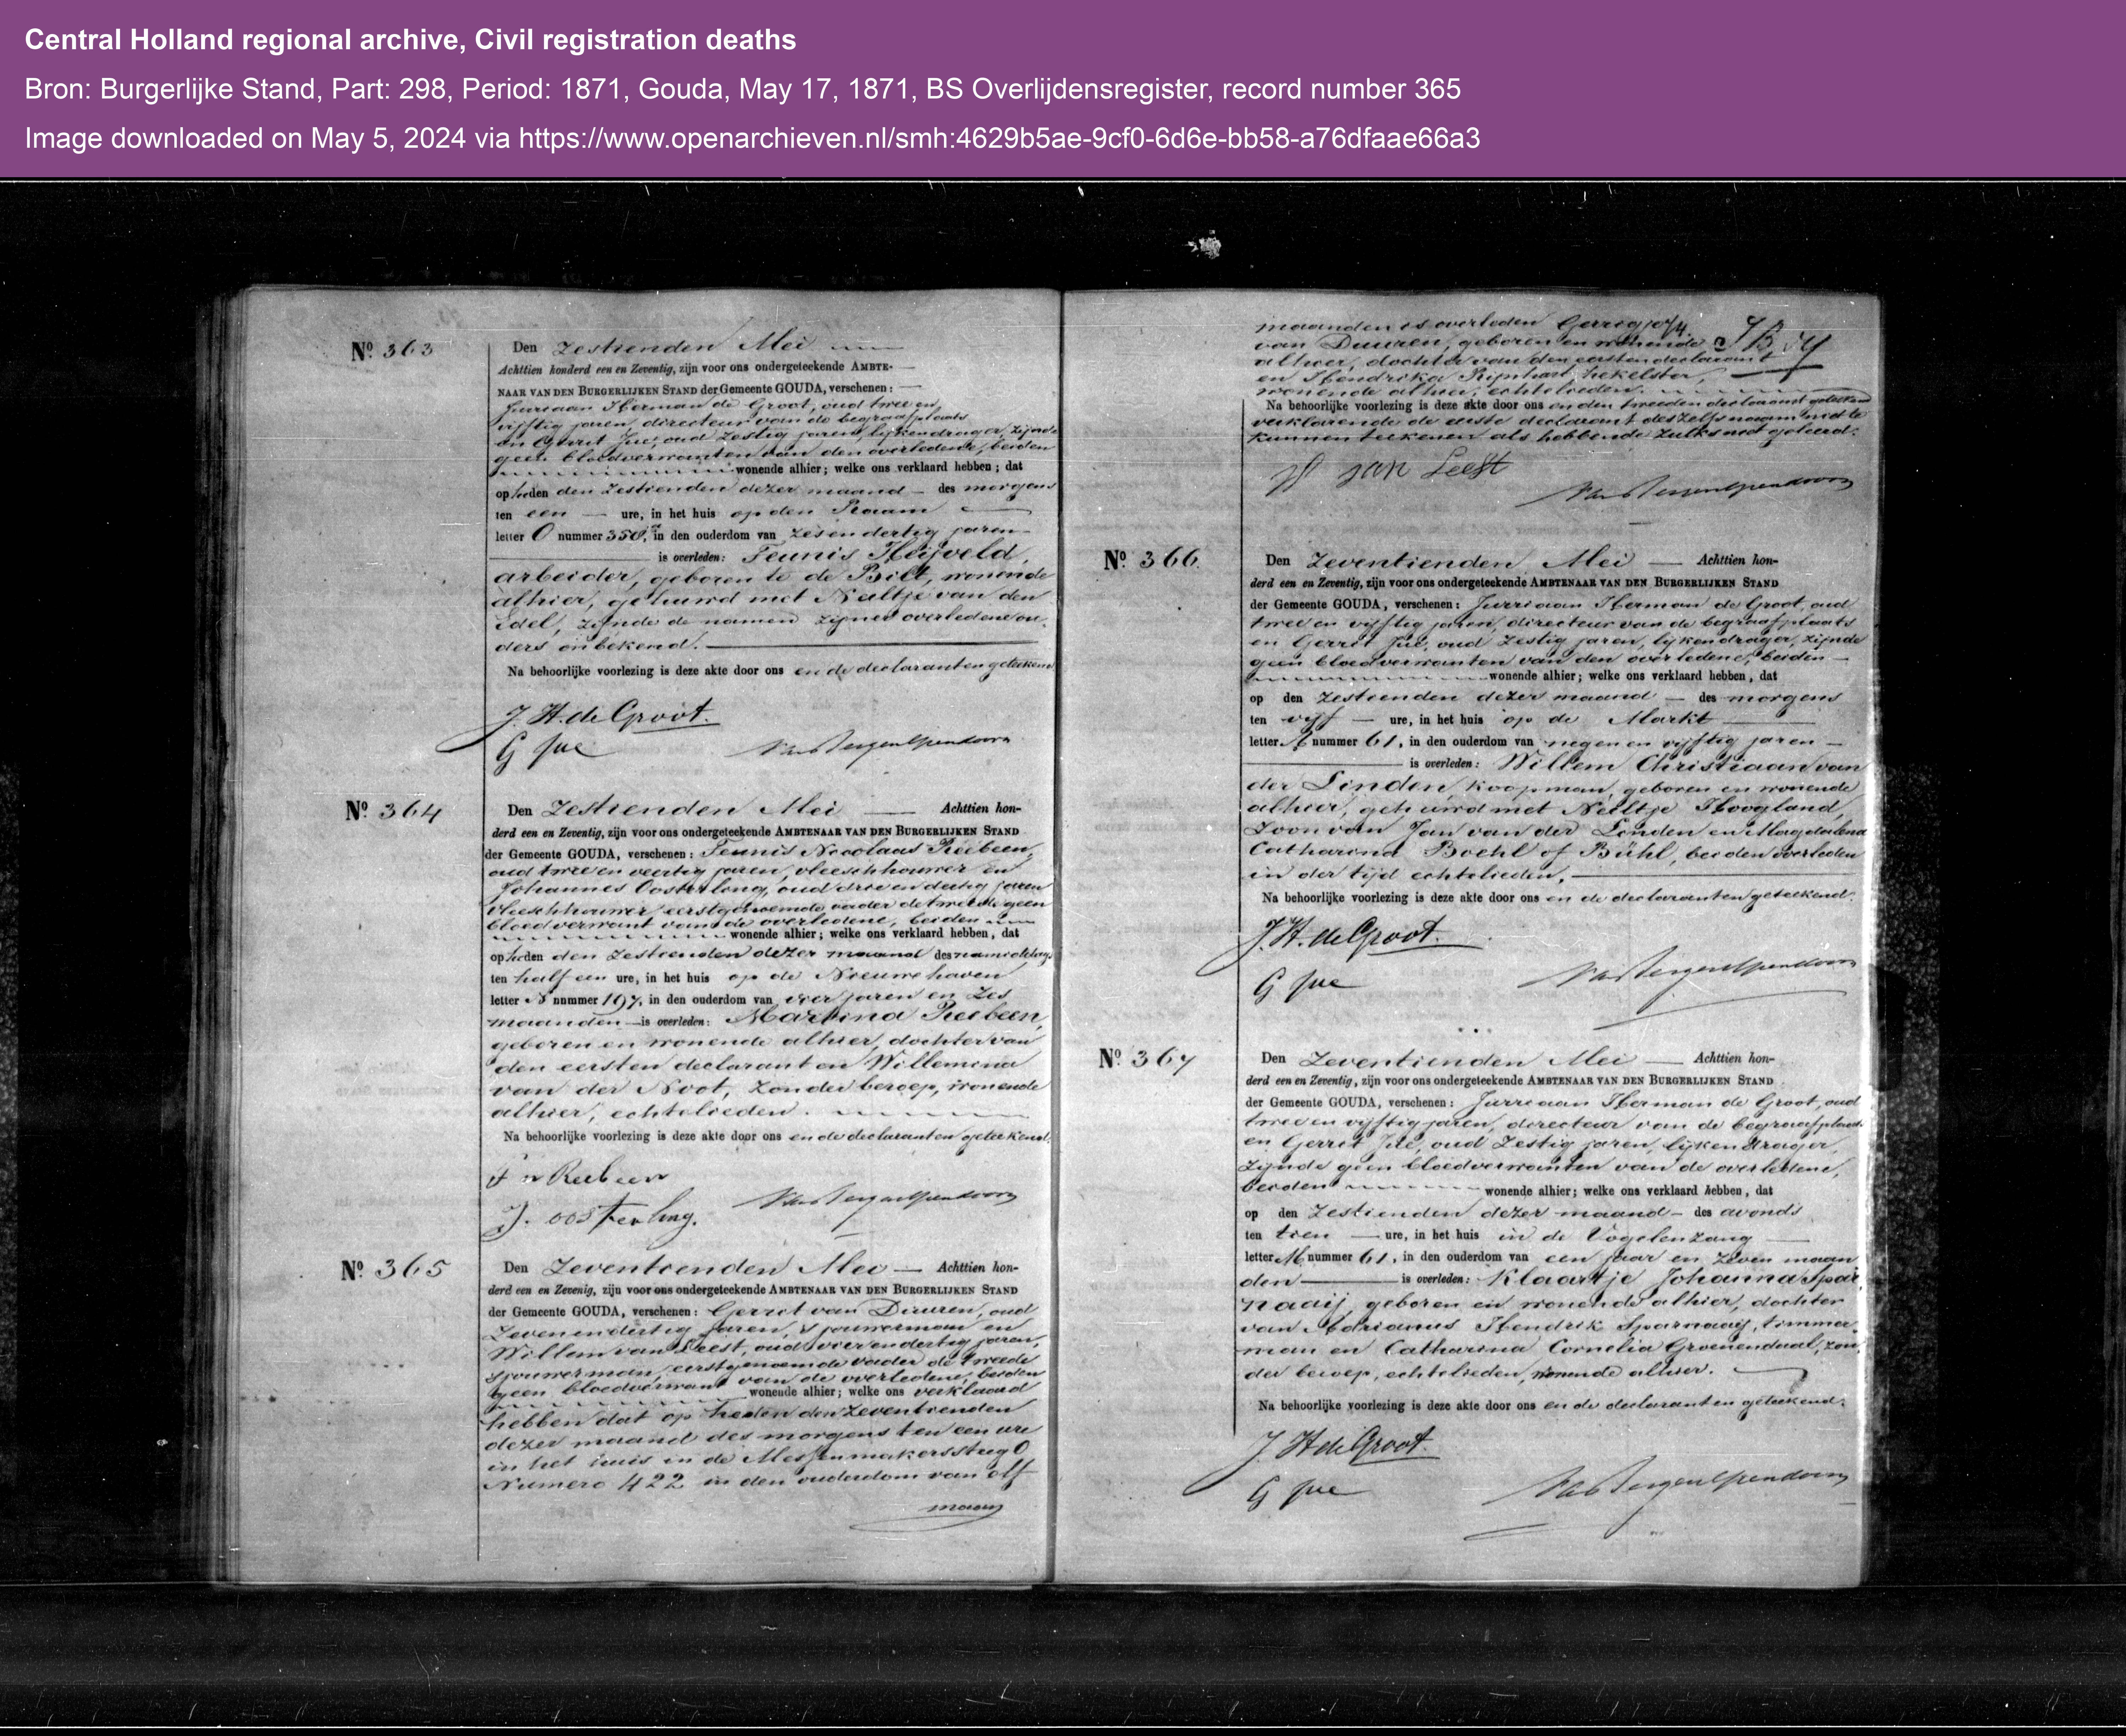 Central Holland regional archive, Civil registration deaths
Bron: Burgerlijke Stand, Part: 298, Period: 1871, Gouda, May 17, 1871, BS Overlijdensregister, record number 365
Image downloaded on May 5, 2024 via https://www.openarchieven.nl/smh:4629b5ae-9cf0-6d6e-bb58-a76dfaae66a3
No. 363
Den Zestienden Mei
Achttien honderd een en Zeventig, zijn voor ons ondergeteekende AMBTE-
NAAR VAN DEN BURGERLIJKEN STAND der Gemeente GOUDA, verschenen:
Jurriaan Herman de Groot, oud twee en
vijftig jaren, directeur van de begraafplaats
en Gerrit Jue, oud Zestig jaren, lijkendrager, zijnde
geen bloedverwanten van den overledene, beiden
wonende alhier; welke ons verklaard hebben; dat
op heden den Zestienden dezer maand des morgens
ten een ure, in het huis op den Raam
letter O nummer 350, in den ouderdom van zesendertig jaren
is overleden: Teunis Heijveld,
arbeider, geboren te de Bilt, wonende
alhier, gehuwd met Neeltje van den
Edel, zijnde de namen zijner overledene ou-
ders onbekend.
Na behoorlijke voorlezing is deze akte door ons en de declaranten geteekend
J. H. de Groot.
G Jue
No. 364
Den Zestienden Mei Achttien hon-
derd een en Zeventig, zijn voor ons ondergeteekende AMBTENAAR VAN DEN BURGERLIJKEN STAND
der Gemeente GOUDA, verschenen: Teunis Nicolaas Reebeen,
oud twee en veertig jaren, vleeschhouwer en
Johannes Oosterling, oud drie en dertig jaren
vleeschhouwer, eerstgenoemde vader de tweede geen
bloedverwant van de overledene, beiden
wonende alhier; welke ons verklaard hebben, dat
op heden den Zestienden dezer maand des namiddags
ten half een ure, in het huis op de Nieuwehaven
letter N nummer 197, in den ouderdom van vier jaren en zes
maanden is overleden: Martina Reebeen,
geboren en wonende alhier, dochter van
den eersten declarant en Willemina
van der Noot, zonder beroep, wonende
alhier, echtelieden.
Na behoorlijke voorlezing is deze akte door ons en de declaranten geteekend.
T n Reebeen
J. oosterling.
No. 365
Den Zeventienden Mei Achttien hon-
derd een en Zevenig, zijn voor ons ondergeteekende AMBTENAAR VAN DEN BURGERLIJKEN STAND
der Gemeente GOUDA, verschenen: Gerrit van Duuren, oud
Zevenendertig jaren, sjouwerman en
Willem van Leest, oud vierendertig jaren,
sjouwerman, eerstgenoemde vader de tweede
geen bloedverwant van de overledene, beiden
wonende alhier; welke ons verklaard
hebben dat op heden den Zeventienden
dezer maand des morgens ten een ure
in het huis in de Messenmakerssteeg O
Numero 422 in den ouderdom van elf
maan
maanden is overleden Gerrigje
van Duuren, geboren en wonende
alhier, dochter van den eersten declarant
en Hendrika Rijnhart, Hekelster,
wonende alhier, echtelieden.
Na behoorlijke voorlezing is deze akte door ons en den tweeden declarant geteekend
verklarende de eerste declarant deszelfs naam niet te
kunnen teekenen als hebbende zulks niet geleerd.
W van Leest
No. 366
Den Zeventienden Mei Achttien hon-
derd een en Zeventig, zijn voor ons ondergeteekende AMBTENAAR VAN DEN BURGERLIJKEN STAND
der Gemeente GOUDA, verschenen: Jurriaan Herman de Groot, oud
twee en vijftig jaren, directeur van de begraafplaats
en Gerrit Jue, oud Zestig jaren, lijkendrager, zijnde
geen bloedverwanten van den overledene, beiden
wonende alhier; welke ons verklaard hebben, dat
op den Zestienden dezer maand des morgens
ten vijf ure, in het huis op de Markt
letter nummer 61, in den ouderdom van negen en vijftig jaren
is overleden: Willem Christiaan van
der Linden, koopman, geboren en wonende
alhier, gehuwd met Neeltje Hoogland,
zoon van Jan van der Linden en Magdalena
Catharina Boehl of Bühl, beiden overleden
in der tijd echtelieden.
Na behoorlijke voorlezing is deze akte door ons en de declaranten geteekend.
J. H. de Groot.
G Jue
No. 367
Den Zeventienden Mei Achttien hon-
derd een en Zeventig, zijn voor ons ondergeteekende AMBTENAAR VAN DEN BURGERLIJKEN STAND
der Gemeente GOUDA, verschenen: Jurriaan Herman de Groot, oud
twee en vijftig jaren, directeur van de begraafplaats
en Gerrit Jue, oud Zestig jaren, lijkendrager,
zijnde geen bloedverwanten van de overledene,
beiden wonende alhier; welke ons verklaard hebben, dat
op den Zestienden dezer maand des avonds
ten tien ure, in het huis in de Vogelenzang
letter M nummer 61, in den ouderdom van een jaar en zeven maan
den is overleden: Klaartje Johanna Spar
naaij, geboren en wonende alhier, dochter
van Adrianus Hendrik Sparnaaij, timmer-
man en Catharina Cornelia Groenendaal, zon-
der beroep, echtelieden, wonende alhier.
Na behoorlijke voorlezing is deze akte door ons en de declaranten geteekend.
J. H de Groot.
G Jue